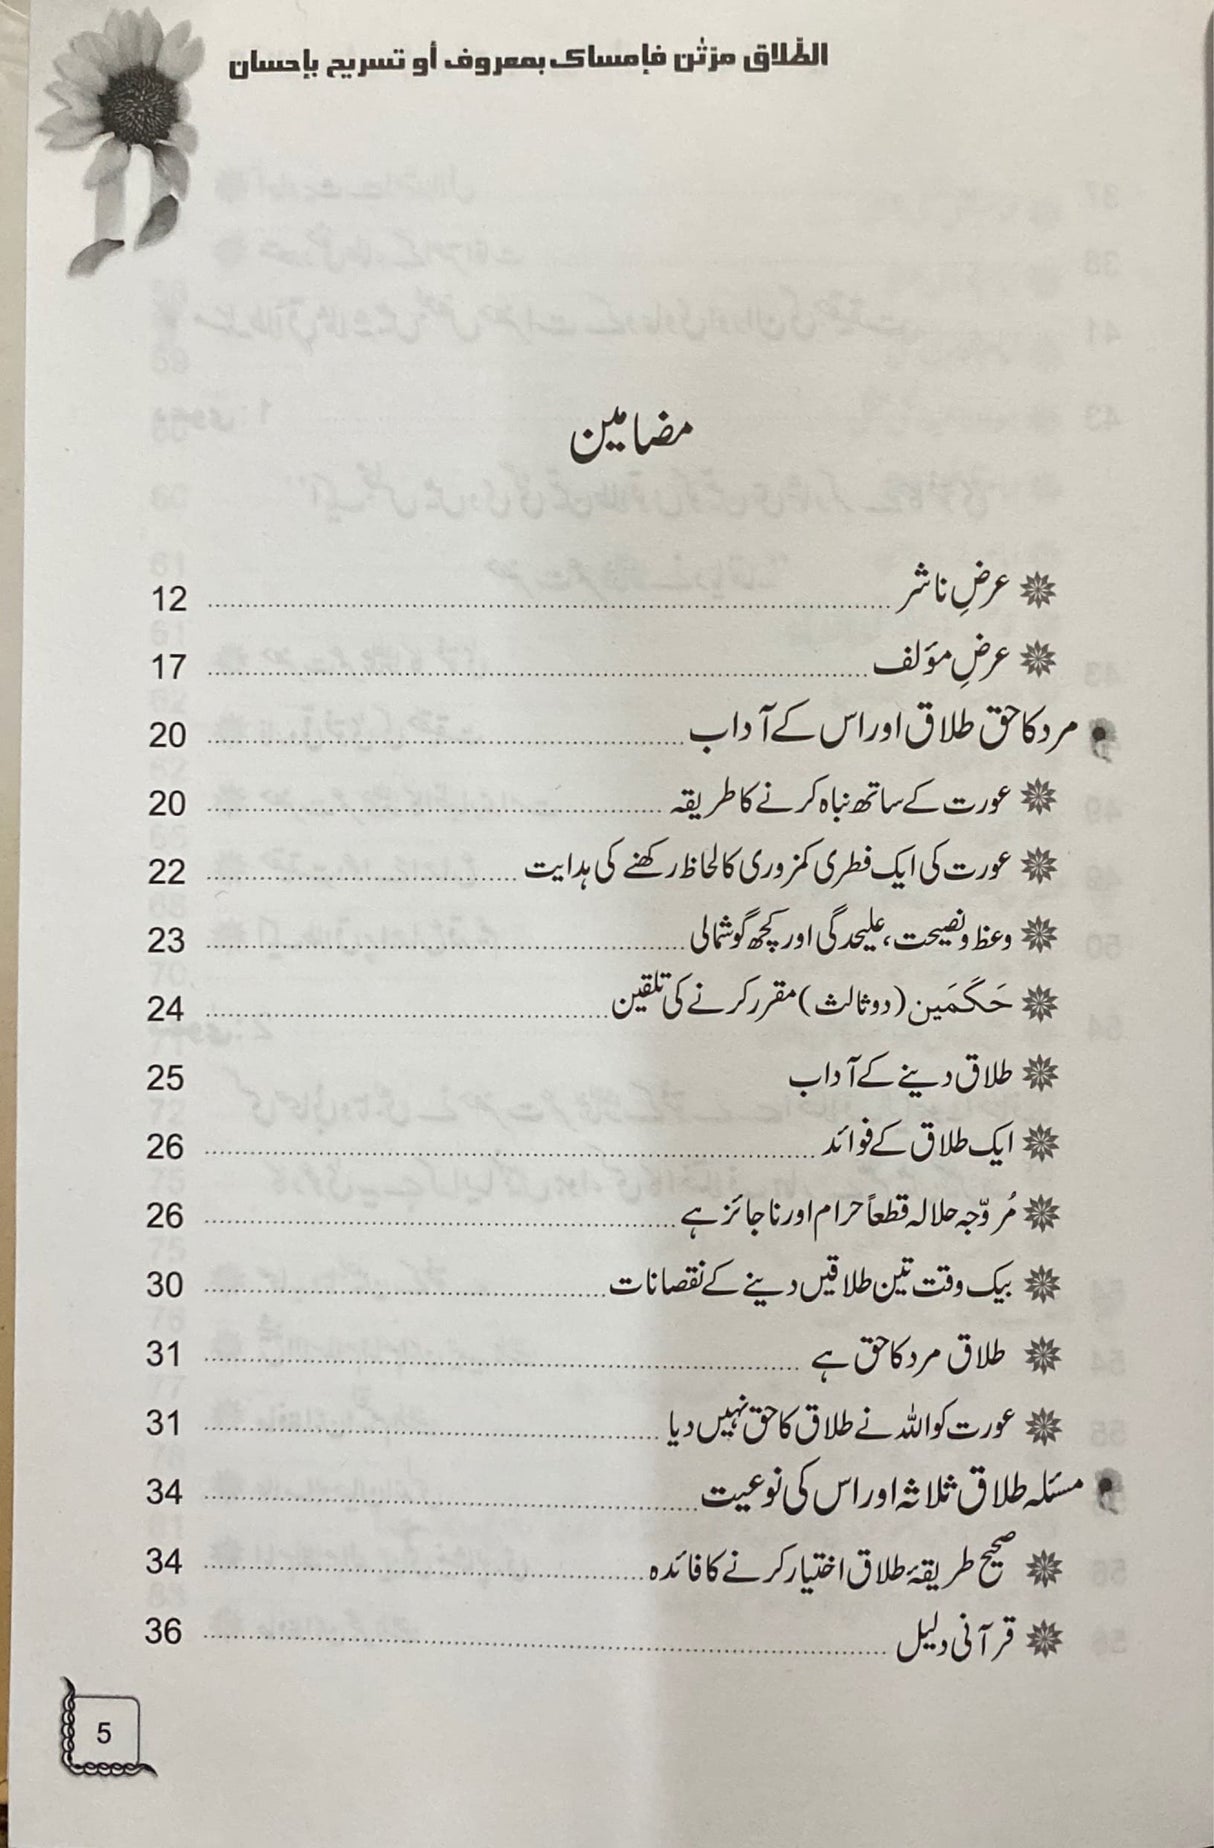 الطّلاق مرّتٰن فإمساك بمعروف أو تسريح بإحسان
مضامین
عرضِ ناشر 12
عرضِ مؤلف 17
مرد کا حق طلاق اور اس کے آداب 20
عورت کے ساتھ نباہ کرنے کا طریقہ 20
عورت کی ایک فطری کمزوری کا لحاظ رکھنے کی ہدایت 22
وعظ و نصیحت، علیحدگی اور کچھ گوشمالی 23
حَکَمَین (دو ثالث) مقرر کرنے کی تلقین 24
طلاق دینے کے آداب 25
ایک طلاق کے فوائد 26
مُروّجہ حلالہ قطعاً حرام اور ناجائز ہے 26
بیک وقت تین طلاقیں دینے کے نقصانات 30
طلاق مرد کا حق ہے 31
عورت کو اللہ نے طلاق کا حق نہیں دیا 31
مسئلہ طلاق ثلاثہ اور اس کی نوعیت 34
صحیح طریقۂ طلاق اختیار کرنے کا فائدہ 34
قرآنی دلیل 36
5